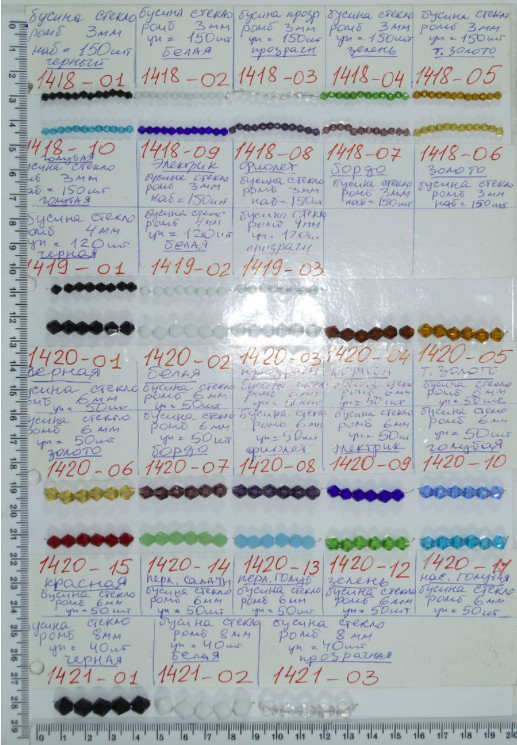 бусина стекло
ромб 3мм
наб = 150шт
черный
1418-01
бусина стекло
ромб 3мм
уп = 150шт
белая
1418-02
бусина прозр
ромб 3мм
уп = 150шт
прозрачн
1418-03
бусина стекло
ромб 3мм
уп = 150шт
зелень
1418-04
бусина стекло
ромб 3мм
уп = 150шт
т. золото
1418-05
1418-10
голубая
бусина стекло
ромб 3мм
наб = 150шт
голубая
1418-09
электрик
бусина стекло
ромб 3мм
наб = 150шт
1418-08
фиолет
бусина стекло
ромб 3мм
наб = 150шт
1418-07
бордо
бусина стекло
ромб 3мм
наб = 150шт
1418-06
золото
бусина стекло
ромб 3мм
наб = 150шт
бусина стекло
ромб 4мм
уп = 120шт
черная
1419-01
бусина стекло
ромб 4мм
уп = 120шт
белая
1419-02
бусина стекло
ромб 4мм
уп = 120шт
прозрачн
1419-03
1420-01
черная
бусина стекло
ромб 6мм
уп = 50шт
1420-02
белая
бусина стекло
ромб 6мм
уп = 50шт
1420-03
прозрачн
ромб 6мм
1420-04
ромб 6мм
уп = 50шт
1420-05
т. золото
бусина стекло
ромб 6мм
уп = 50шт
бусина стекло
ромб 6мм
уп = 50шт
золото
1420-06
бусина стекло
ромб 6мм
уп = 50шт
бордо
1420-07
бусина стекло
ромб 6мм
уп = 50шт
фиолет
1420-08
бусина стекло
ромб 6мм
уп = 50шт
электрик
1420-09
бусина стекло
ромб 6мм
уп = 50шт
голубая
1420-10
1420-15
красная
бусина стекло
ромб 6мм
уп = 50шт
1420-14
перл. салатн
бусина стекло
ромб 6мм
уп = 50шт
1420-13
перл. голуб
бусина стекло
ромб 6мм
уп = 50шт
1420-12
зелень
бусина стекло
ромб 6мм
уп = 50шт
1420-11
нас. голубая
бусина стекло
ромб 6мм
уп = 50шт
бусина стекло
ромб 8мм
уп = 40шт
черная
1421-01
бусина стекло
ромб 8мм
уп = 40шт
белая
1421-02
бусина стекло
ромб 8мм
уп = 40шт
прозрачная
1421-03
0 1 2 3 4 5 6 7 8 9 10 11 12 13 14 15 16 17 18 19 20